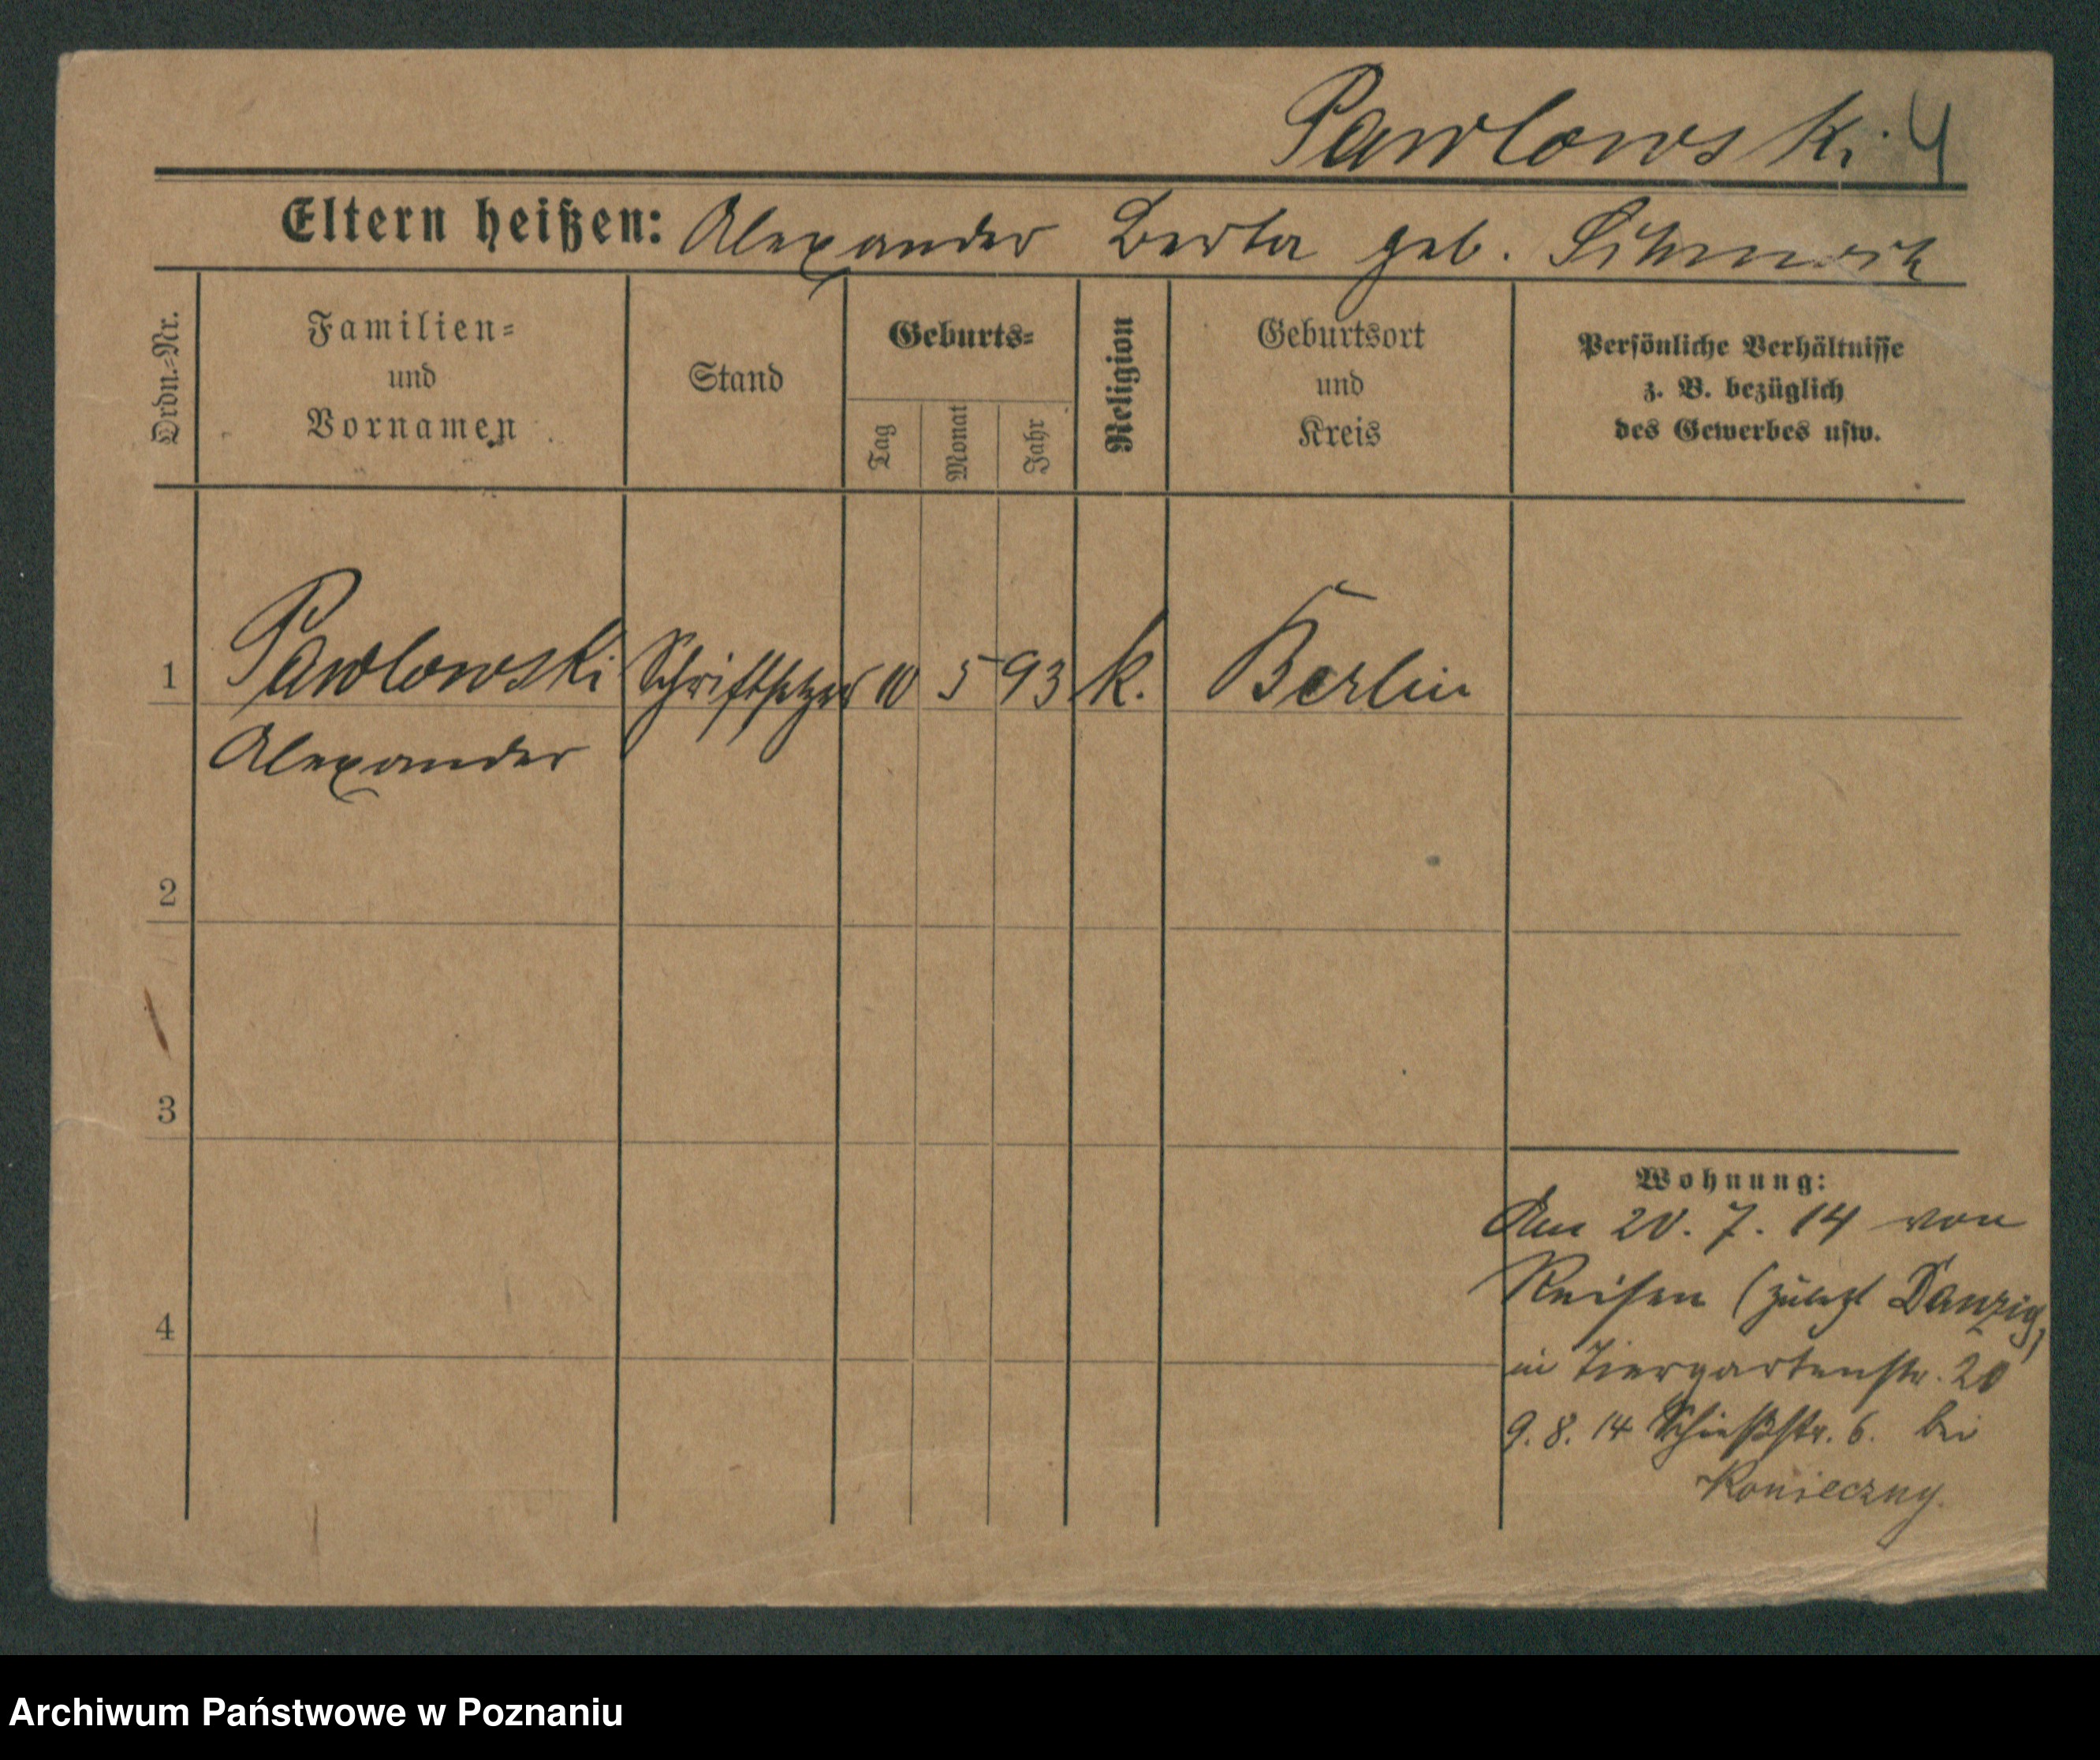 Pawlowski 4
Eltern heißen: Alexander Berta geb.
Ordn.-Nr.
Familien-
und
Vornamen
Stand
Geburts-
Tag
Monat
Jahr
Religion
Geburtsort
und
Kreis
Persönliche Verhältnisse
z. B. bezüglich
des Gewerbes usw.
1 Pawlowski Schriftsetzer 10 5 93 k. Berlin
Alexander
2
3
4
Wohnung:
Am 20. 7. 14 von
Reisen (zuletzt Danzig)
in Tiergartenstr. 20
9. 8. 14 Schießstr. 6. bei
Konieczny.
Archiwum Państwowe w Poznaniu